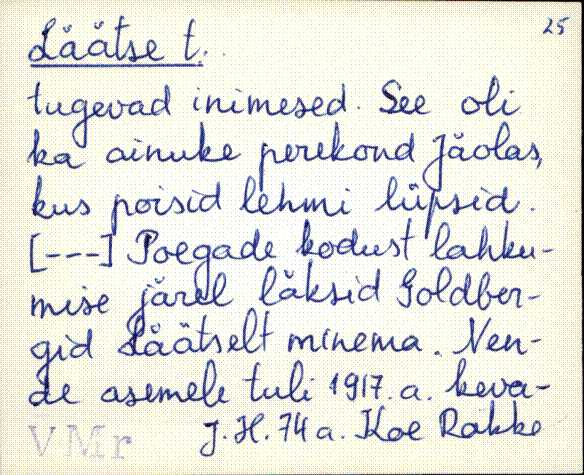 25
Läätse t.
tugevad inimesed. See oli
ka ainuke perekond Jäolas,
kus poisid lehmi lüpsid.
[---] Poegade kodust lahku-
mise järel läksid Goldber-
gid Läätselt minema. Nen-
de asemele tuli 1917. a. keva-
VMr J. H. 74 a. Koe Rakke